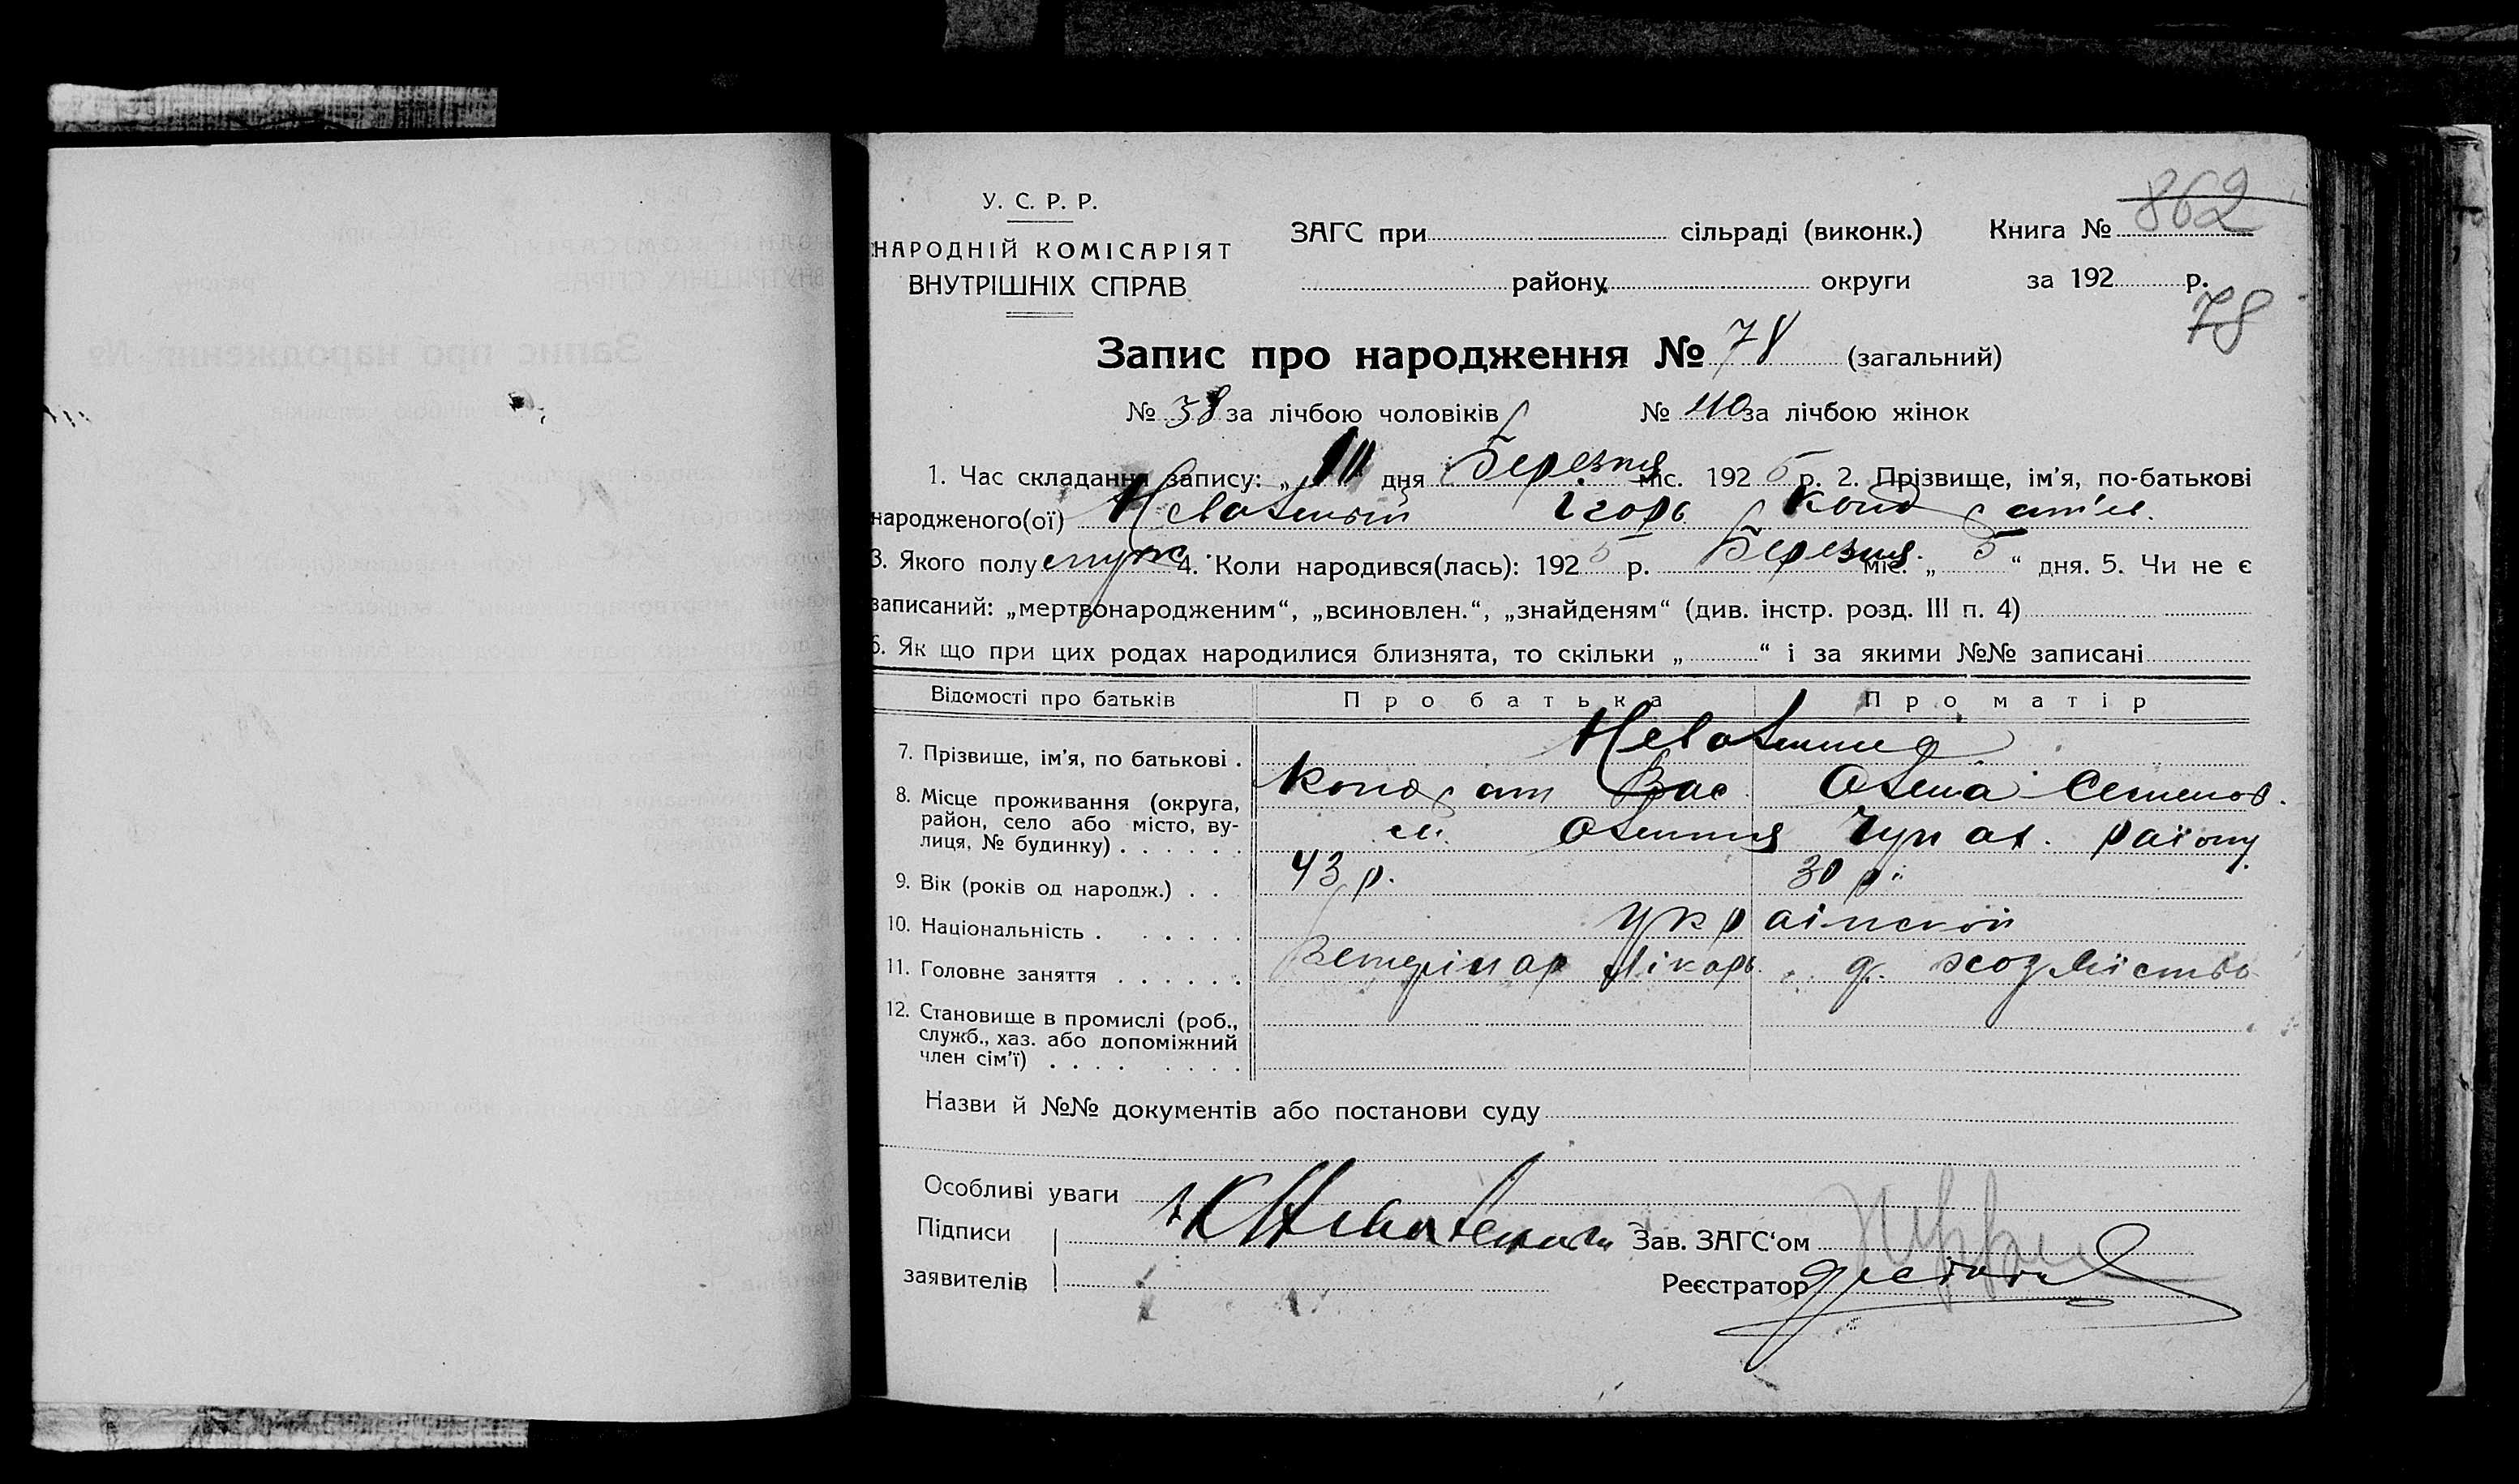 862
У. С. Р. Р.
НАРОДНІЙ КОМІСАРІЯТ
ВНУТРІШНІХ СПРАВ
ЗАГС при сільраді (виконк.) Книга №
району округи за 192 р.
78
Запис про народження № 78 (загальний)
№ 38 за лічбою чоловіків № 40 за лічбою жінок
1. Час складання запису: „ дня Березня міс. 1925 р. 2. Прізвище, ім'я, по-батькові
народженого(ої) Ігорь Кондрат'їв.
3. Якого полу муж. 4. Коли народився(лась): 1925 р. Березня міс. „ 5 “ дня. 5. Чи не є
записаний: „мертвонародженим“, „всиновлен.“, „знайденям“ (див. інстр. розд. III п. 4)
6. Як що при цих родах народилися близнята, то скільки „ “ і за якими №№ записані
Відомості про батьків Про батька Про матір
7. Прізвище, ім'я, по батькові .
Кондрат Вас. Олена Семенов.
8. Місце проживання (округа,
район, село або місто, ву-
лиця, № будинку) . . . . . . району
9. Вік (років од народж.) . . . 43 р. 30 р.
10. Національність . . . . . . українской
11. Головне заняття . . . . . . Ветерінар Лікарь д. хозяйство
12. Становище в промислі (роб.,
служб., хаз. або допоміжний
член сім'ї) . . . . . . . .
Назви й №№ документів або постанови суду
Особливі уваги
Підписи
заявителів
Зав. ЗАГС‘ом
Реєстратор